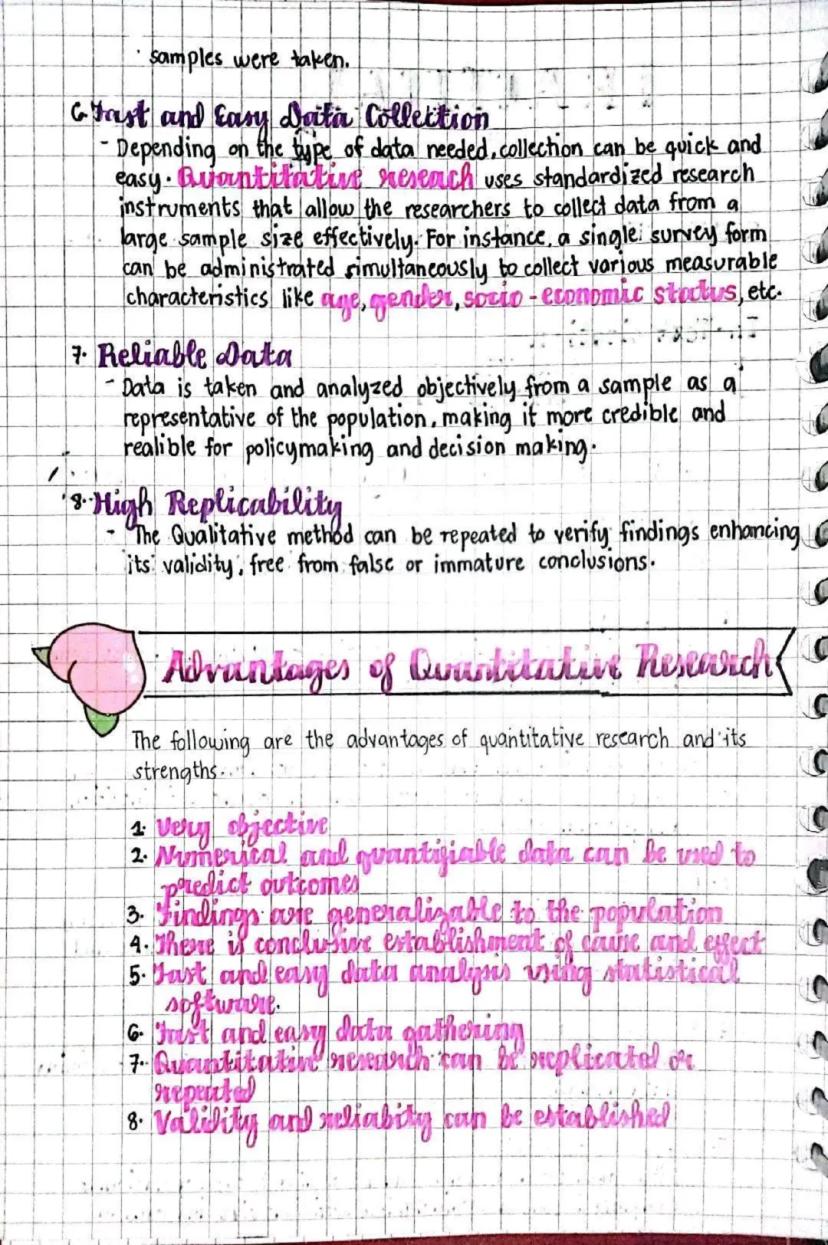 samples were taken.
6. Fast and Easy Data Collection
- Depending on the type of data needed, collection can be quick and
easy. Quantitative reseach uses standardized research
instruments that allow the researchers to collect data from a
large sample size effectively. For instance, a single survey form
can be administrated simultaneously to collect various measurable
characteristics like age, gender, socio-economic status, etc.
7. Reliable Data
- Data is taken and analyzed objectively from a sample as a
representative of the population, making it more credible and
realible for policymaking and decision making.
8. High Replicability
- The Qualitative method can be repeated to verify findings enhancing
its validity, free from false or immature conclusions.
Advantages of Quantitative Research
The following are the advantages of quantitative research and its
strengths.
1. Very objective
2. Numerical and quantifiable data can be used to
predict outcomes
3. Findings are generalizable to the population
4. There is conclusive establishment of cause and effect
5. Fast and easy data analysis using statistical
software.
6. Fast and easy data gathering
7. Quantitative research can be replicated or
repeated
8. Validity and reliabity can be established